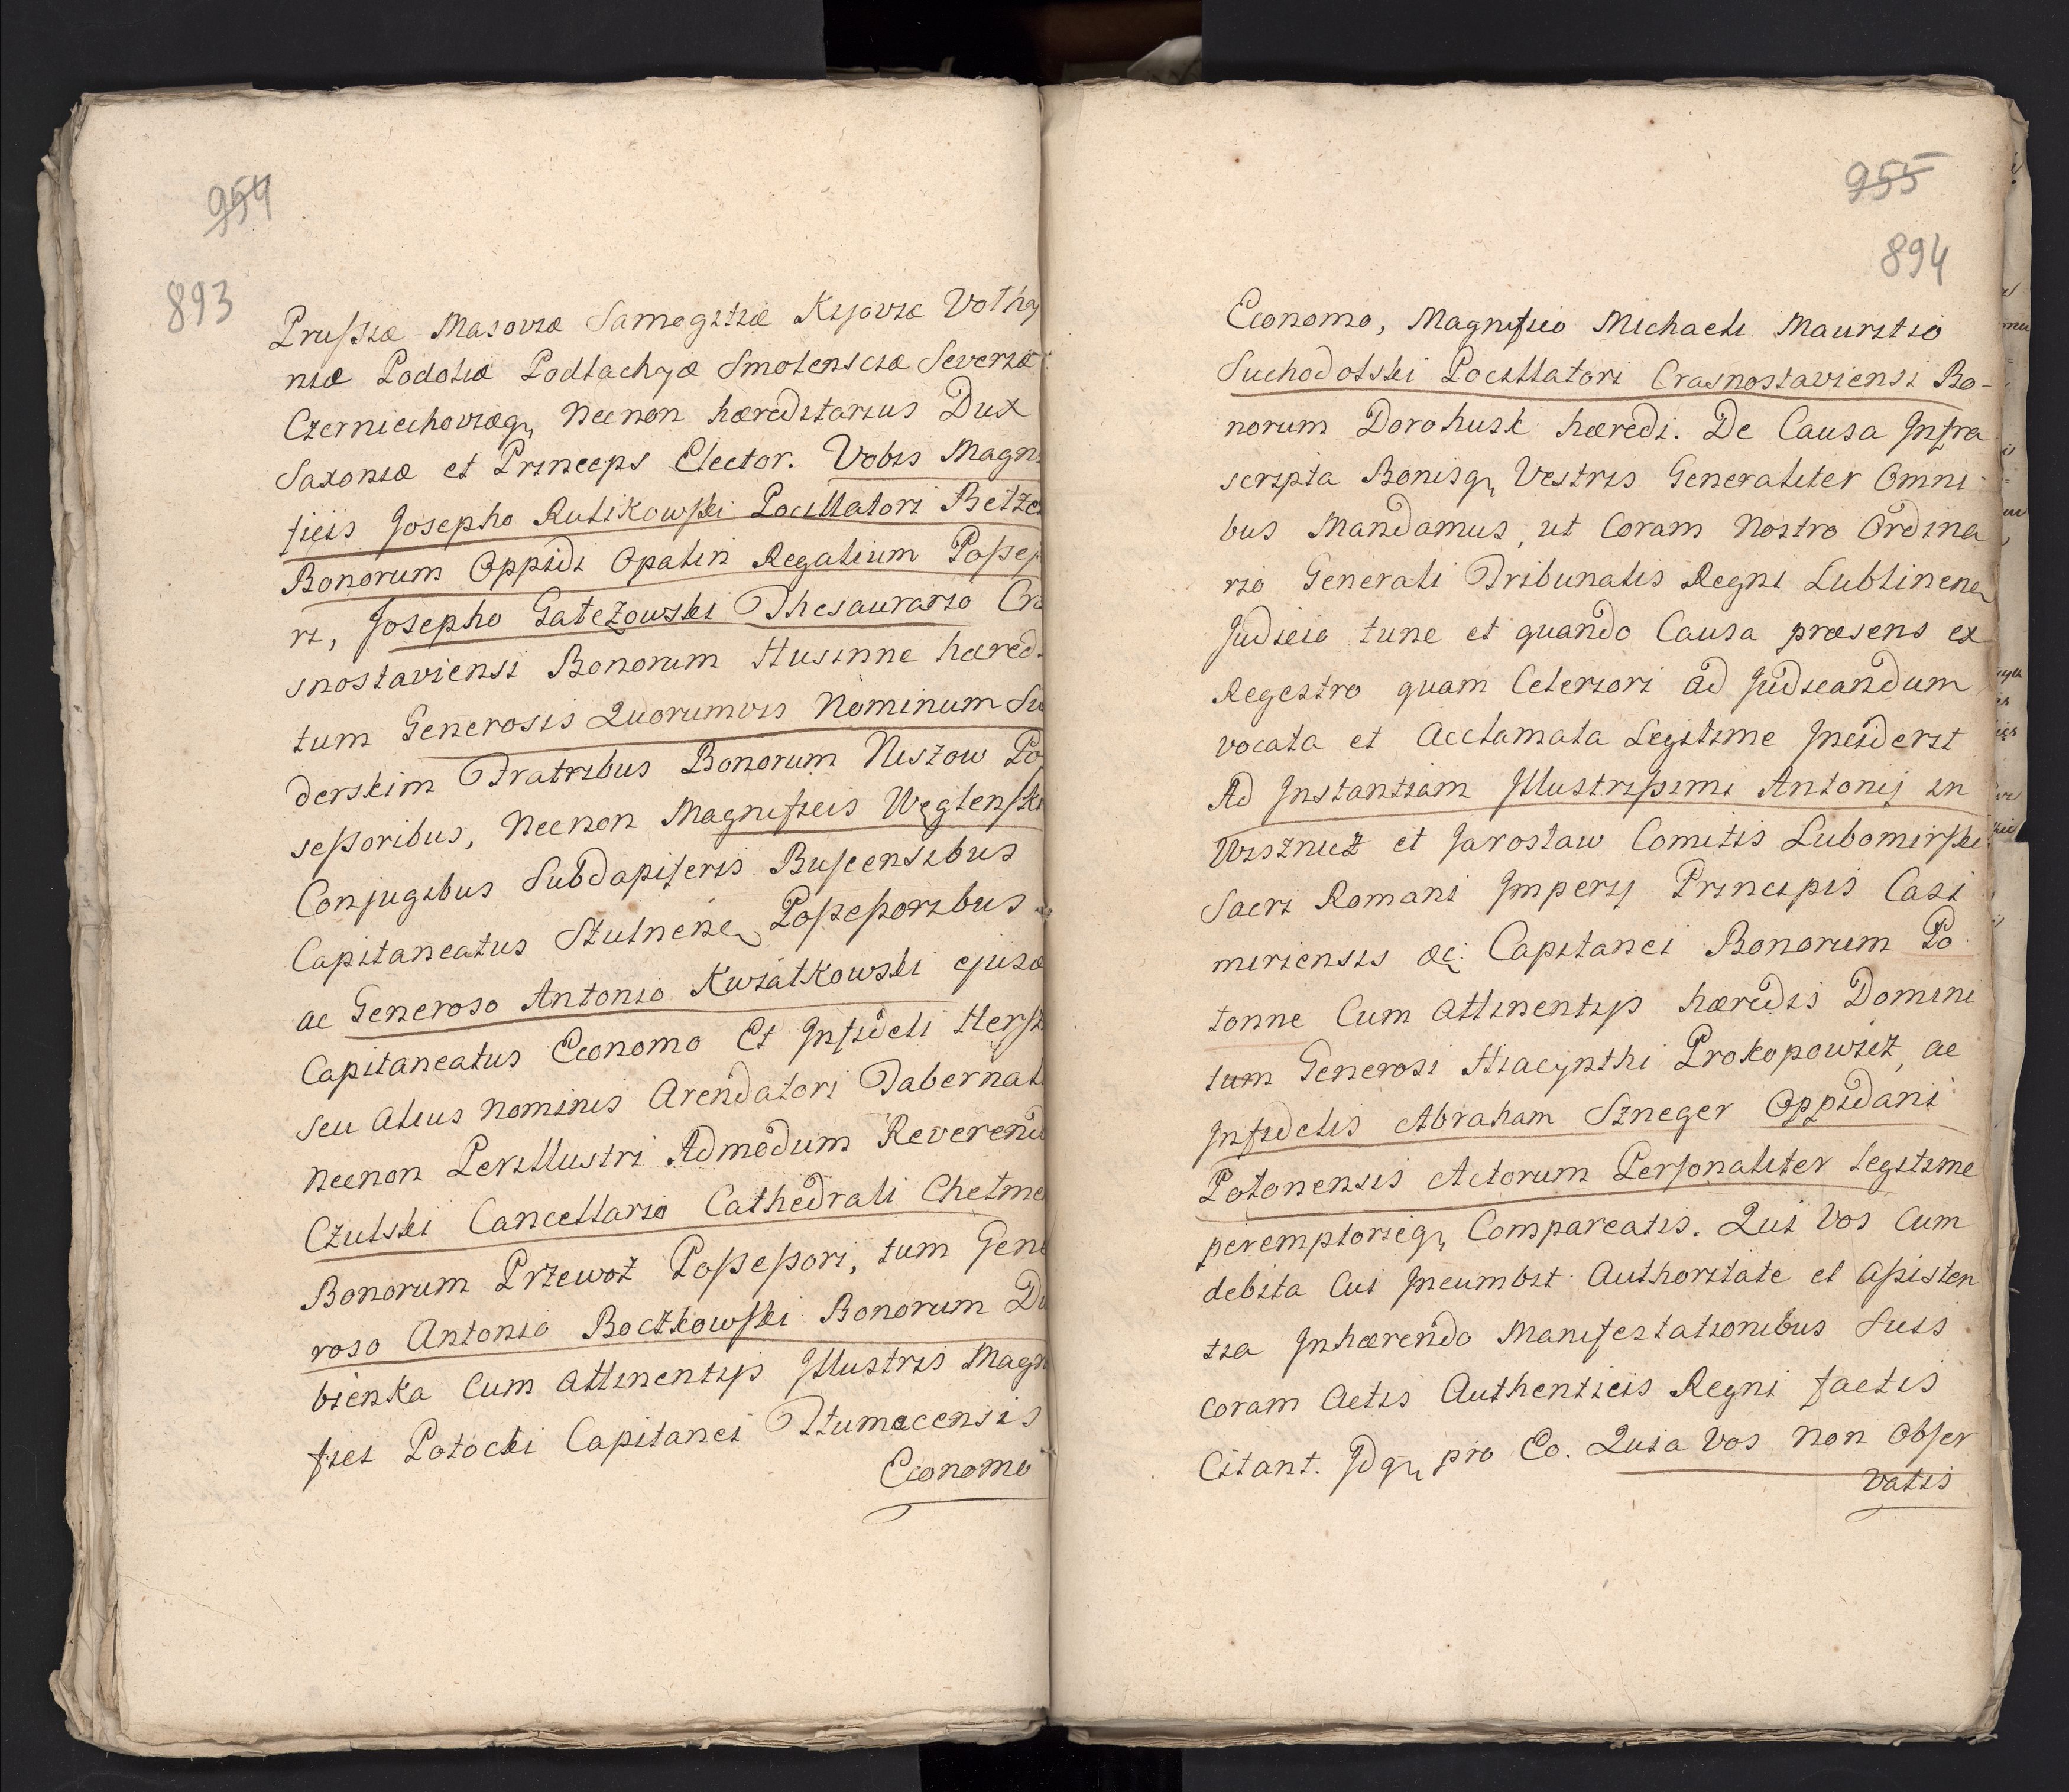 954
893
Prußiæ Masoviæ Samogitiæ Kijoviæ Volhÿ
niæ Podoliæ Podlachyæ Smolensciæ Severiæ
Czerniechoviæq, Necnon hæreditarius Dux
Saxoniæ et Princeps Elector. Vobis Magni
ficis Josepho Rulikowski Pocillatori Betze
Bonorum Oppidi Opalin Regalium Poßeß
ri, Josepho Gałęzowski Thesaurario Cra
snostaviensi Bonorum Husinne hæred.
tum Generosis Quorumvis Nominum Su
derskim Fratribus Bonorum Niszow Po
seßoribus, Necnon Magnificis Węglenski
Conjugibus Subdapiferis Buscensibus
Capitaneatus Stulnene Poßeßoribus
ac Generoso Antonio Kwiatkowski ejusd
Capitaneatus Economo Et Infideli Hersz
seu Alius nominis Arendatori Tabernat
Necnon Perillustri Admodum Reverend
Czulski Cancellario Cathedrali Chełme
Bonorum Przewoz Poßeßori, tum Gene
roso Antonio Boczkowski Bonorum Du
bienka Cum Attinentijs Illustris Magni
fici Potocki Capitanei Tłumacensis
Economo
955
894
Economo, Magnifico Michaeli Mauritio
Suchodolski Pocillatori Crasnostaviensi Bo-
norum Dorohusk hæredi. De Causa Infra
scripta Bonisq, Vestris Generaliter Omni
bus Mandamus, ut Coram Nostro Ordina
rio Generali Tribunalis Regni Lublinene
Judicio tunc et quando Causa præsens ex
Regestro quam Celeriori ad Judicandum
vocata et Acclamata Legitime Inciderit
Ad Instantiam Illustrißimi Antonij in
Wisznicz et Jarosław Comitis Lubomirski
Sacri Romani Imperij Principis Casi
miriensis &c: Capitanei Bonorum Po
tonne Cum Attinentijs hæredis Domini
tum Generosi Hiacynthi Prokopowicz, ac
Infidelis Abraham Szneger Oppidani
Potonensis Actorum Personaliter legitime
peremptorieq, Compareatis. Qui Vos Cum
debita Cui Incumbit Authoritate et Aßisten
tia Inhærendo Manifestationibus Suis
coram Actis Authenticis Regni factis
Citant. Idq, pro Eo. Quia Vos non Obser
vatis